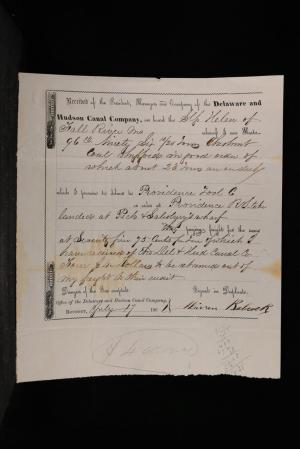 Received of the President, Managers and Company of the Delaware and
Hudson Canal Company, on board the Slp Helen of
Fall River whereof I am Master
96 Ninety Six Tons Chestnut
Coal in good order of
which about 25 Tons on deck
which I promise to deliver to Providence Tool Co
or order at Providence R I to be
landed at Wharf
they paying freight for the same
at Seventy five 75 Cents per ton of which I
have received of the Del & Hud Canal Co
Dollars to be retained out of
my freight to their credit
Dangers of the Seas excepted. Signed in Duplicate.
Office of the Delaware and Hudson Canal Company,
Rondout, July 17 186 Warren Babcock